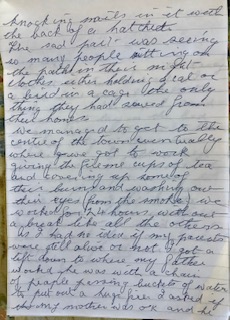 knocking nails in it with
the back of a hatchet.
The sad part was seeing
so many people sitting on
the paths in their night
clothes either holding a cat or
a bird in a cage the only
thing they had saved from
their homes
we managed to get to the
centre of the town eventually
where we got to work
giving the firemen cups of tea
and covering up some of
their burns and washing out
their eyes (from the smoke) we
worked for 24 hours without
a break like all the others
as I had no idea if my parents
were still alive or not I got a
lift down to where my father
worked he was with a chain
of people passing buckets of water
to put out a huge fire I asked if
my mother was ok and he